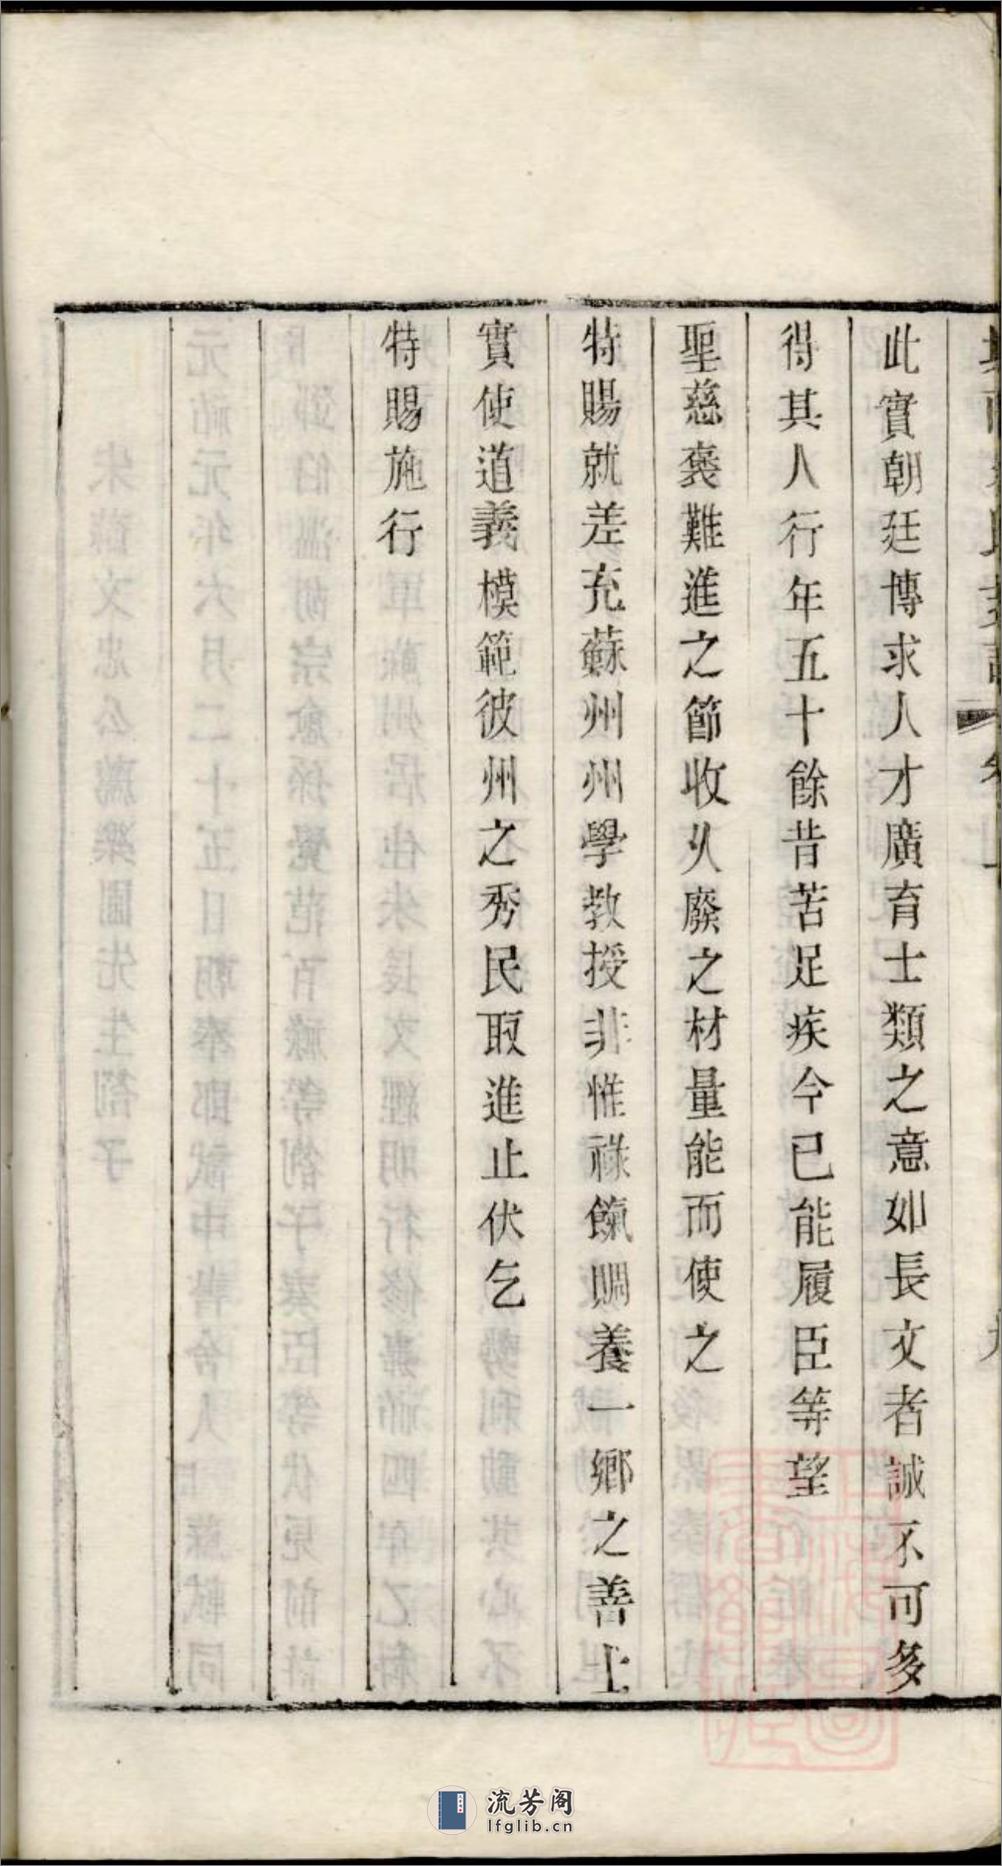 此實朝廷博求人才廣育士類之意如長文者誠不可多
得其人行年五十餘昔苦足疾今已能履臣等望
聖慈褒難進之節收久廢之材量能而使之
特賜就差充蘇州州學教授非惟祿餼賙養一鄉之善士
實使道義模範彼州之秀民取進止伏乞
特賜施行
流芳阁
lfglib.cn